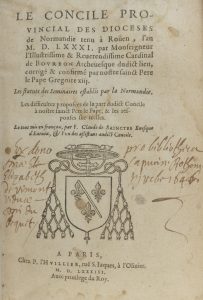 LE CONCILE PRO-
VINCIAL DES DIOCESES
de Normandie tenu à Roüen, l'an
M. D. LXXXI. par Monseigneur
l'Illustrissime & Reuerendissime Cardinal
de BOVRBON Archeuesque dudict lieu,
corrigé & confirmé par nostre sainct Pere
le Pape Gregoire xiij.
Les statuts des seminaires establis par la Normandie.
Les difficultez proposées de la part dudict Concile
à nostre sainct Pere le Pape, & les res-
ponses sur icelles.
Le tout mis en françois, par F. Claude de SAINCTES Euesque
d'Eureux, & l'un des assistans audict Concile.
Ex dono
pro bibliotheca
A PARIS,
Chez P. l'HVILLIER, rué S. Iaques, à l'Oliuier.
M. D. LXXXIII.
Auec priuilege du Roy.